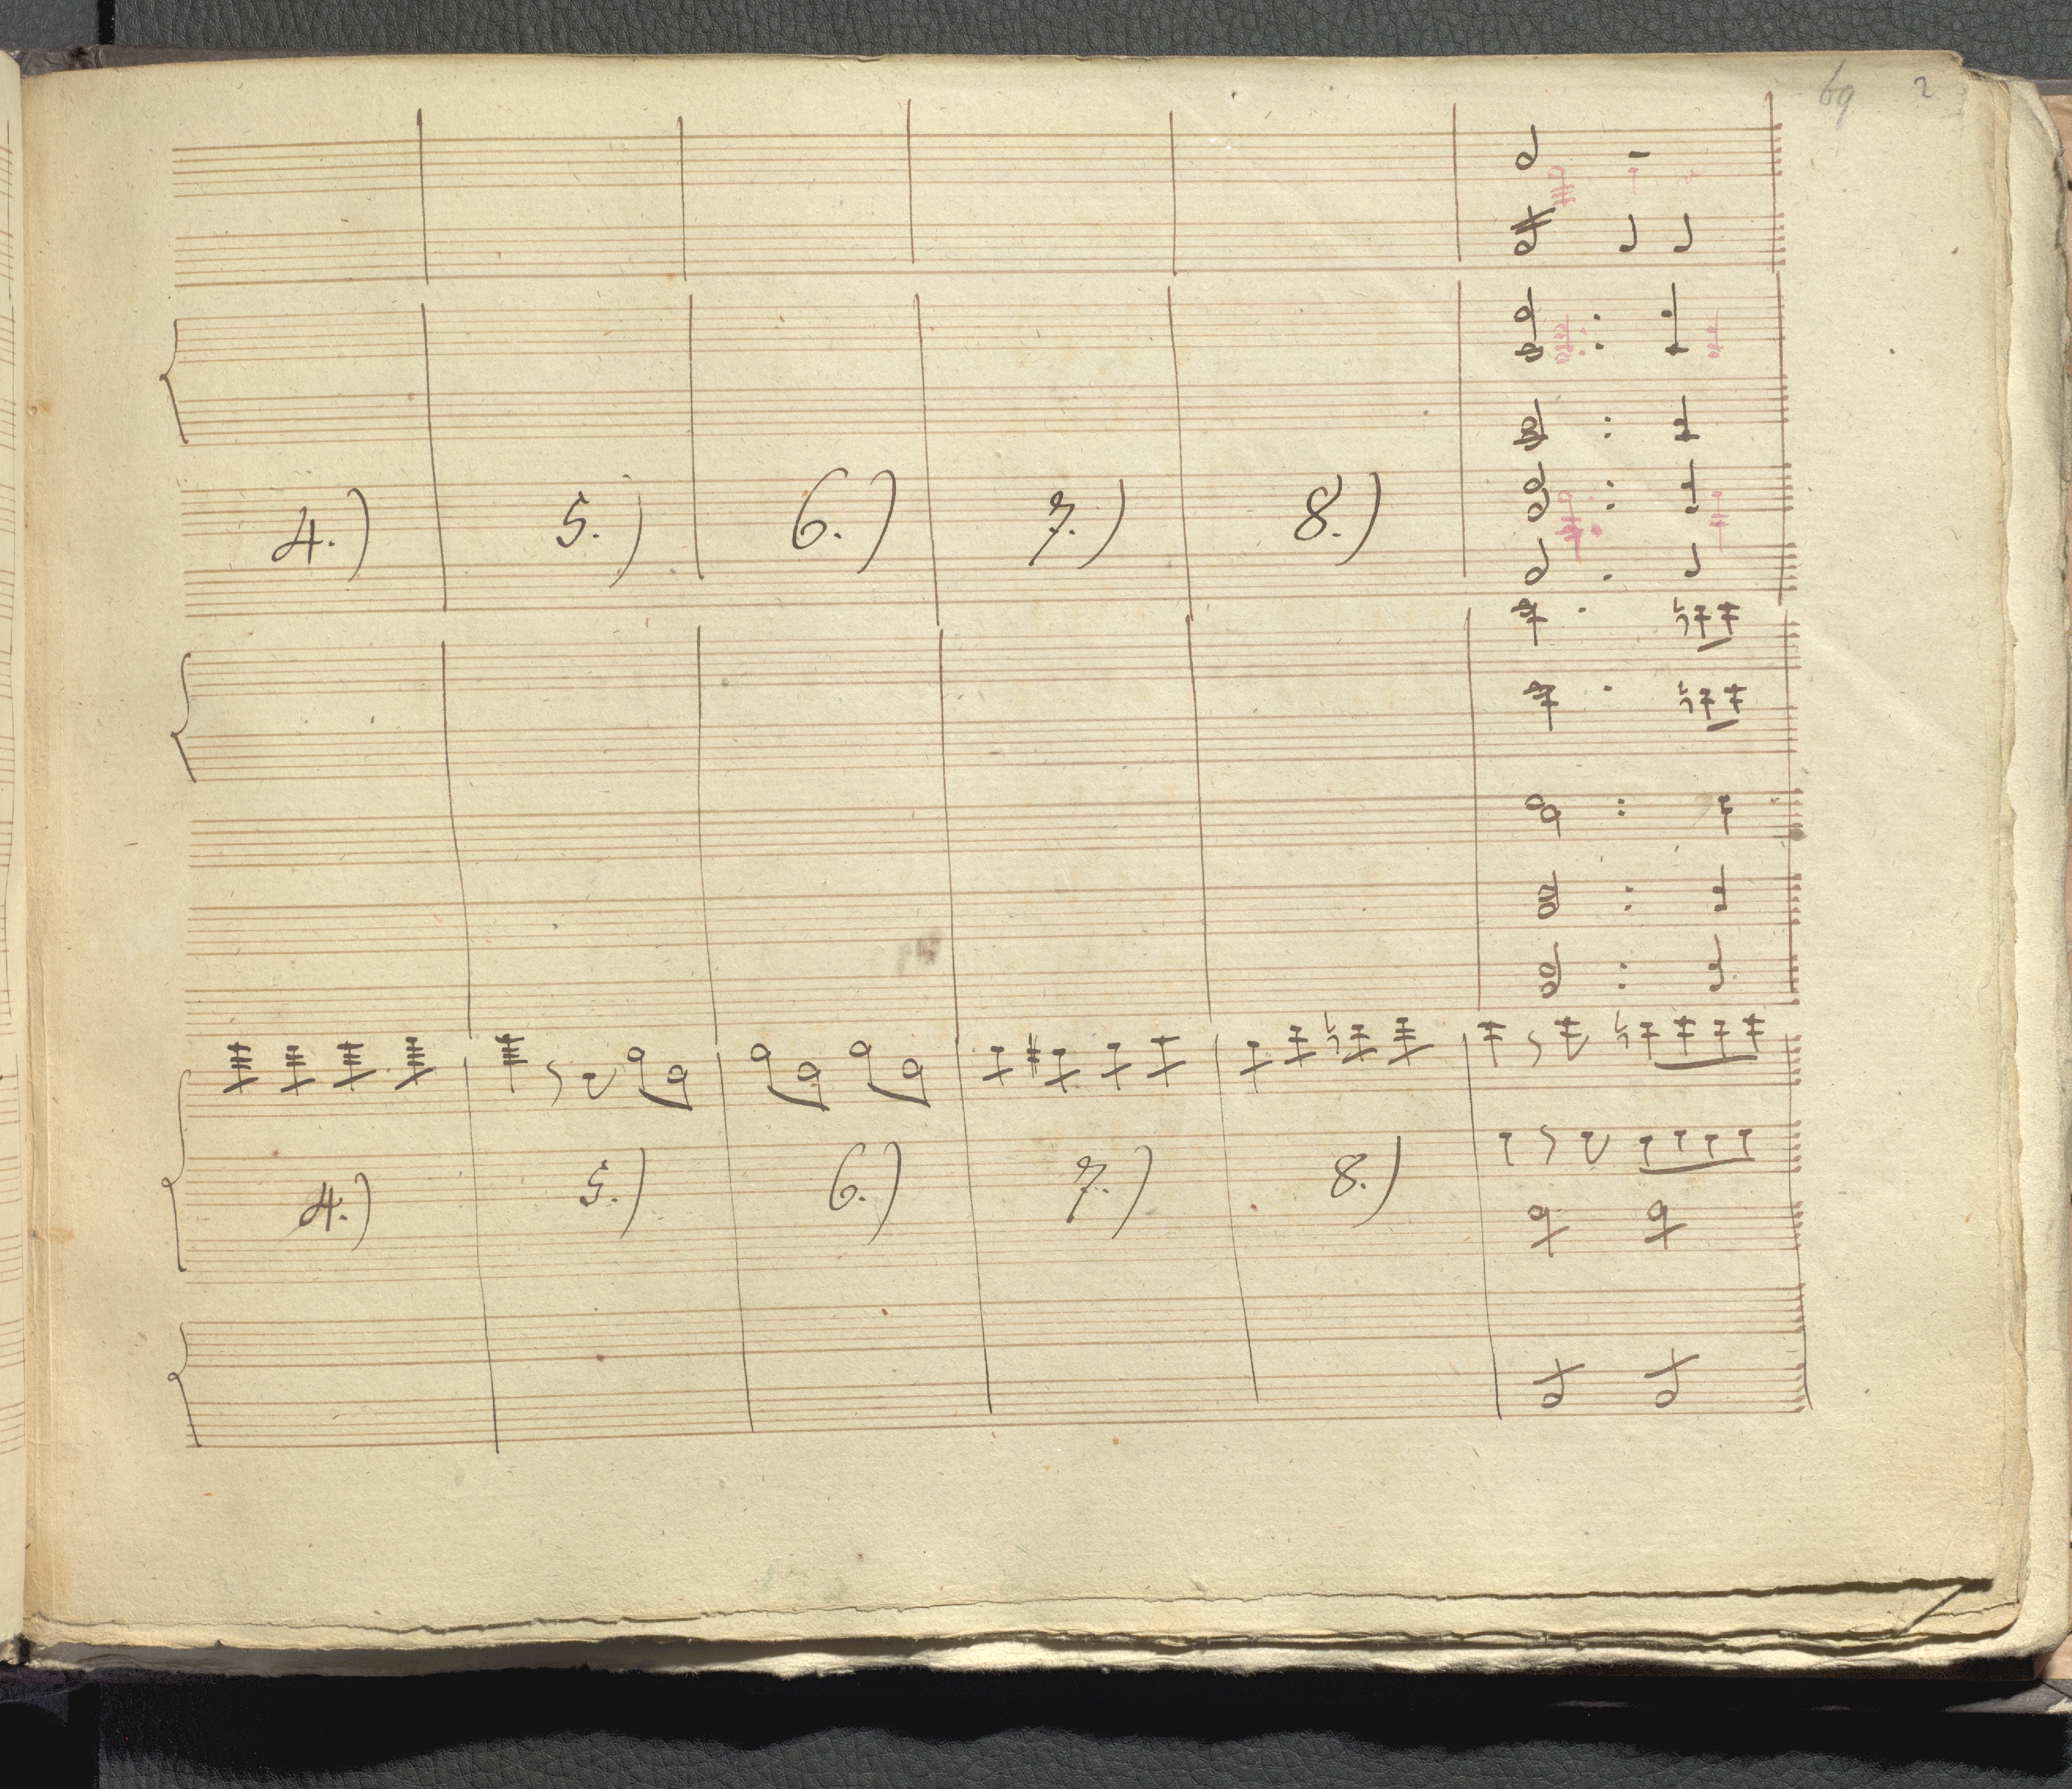 69 2
4.) 5.) 6.) 7.) 8.)
4.) 5.) 6.) 7.) 8.)